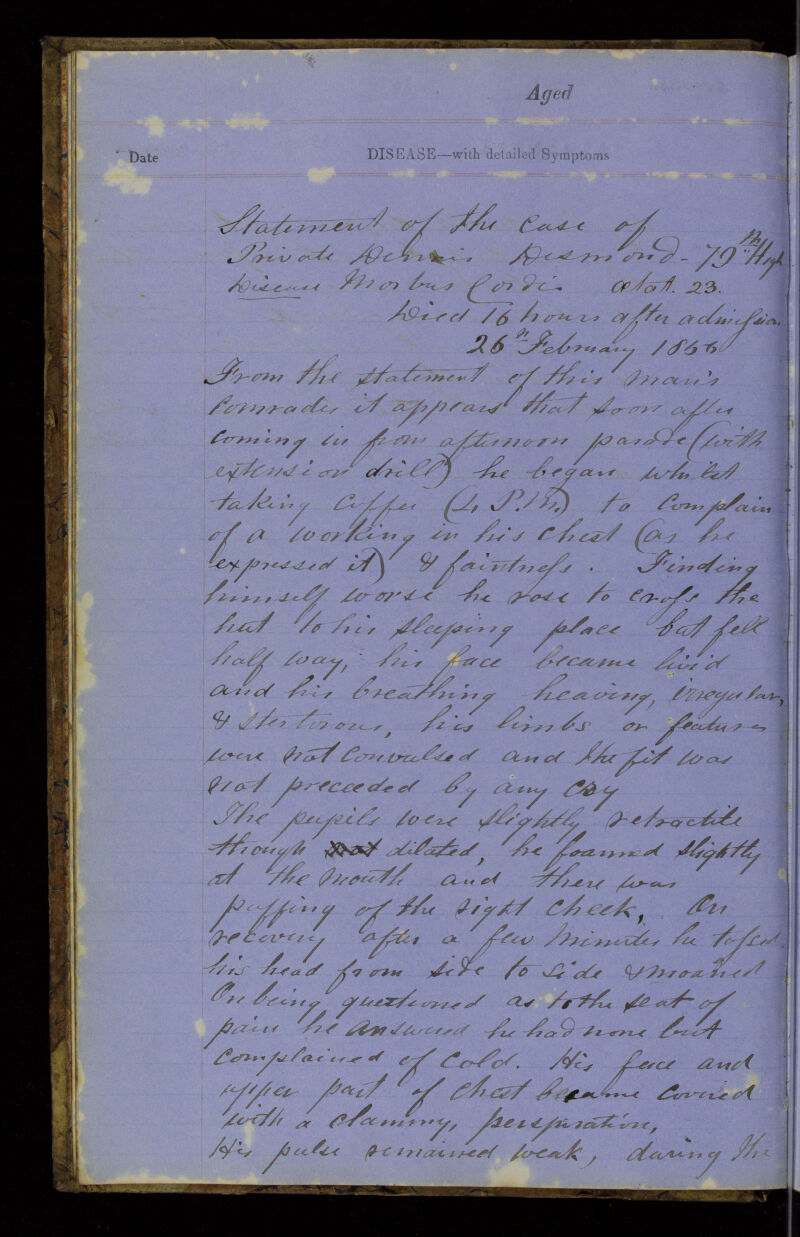 Aged
Date
DISEASE—with detailed Symptoms
Statement of the case of
Private Dennis Desmond - 79th High
Disease Morbus Cordis ætat. 23.
Died 16 hours after admission
26th February 1866
From the statement of this man's
comrades it appears that soon after
coming in from afternoon parade (with
extension drill) he began whilst
taking coffee (4 P.M.) to complain
of a working in his chest (as he
expressed it) & faintness. Finding
himself worse he rose to cross the
hut to his sleeping place but fell
half way, his face became livid
and his breathing heaving, irregular,
& stertorous, his limbs or features
were not convulsed and the fit was
not preceeded by any cry
The pupils were slightly retractile
though not dilated, he foamed slightly
at the mouth and there was
puffing of the right cheek, On
recovery after a few minutes he tossed
his head from side to side & moaned
On being questioned as to the seat of
pain he answered he had none but
complained of cold. His face and
upper part of chest became covered
with a clammy, perspiration,
His pulse remained weak, during the